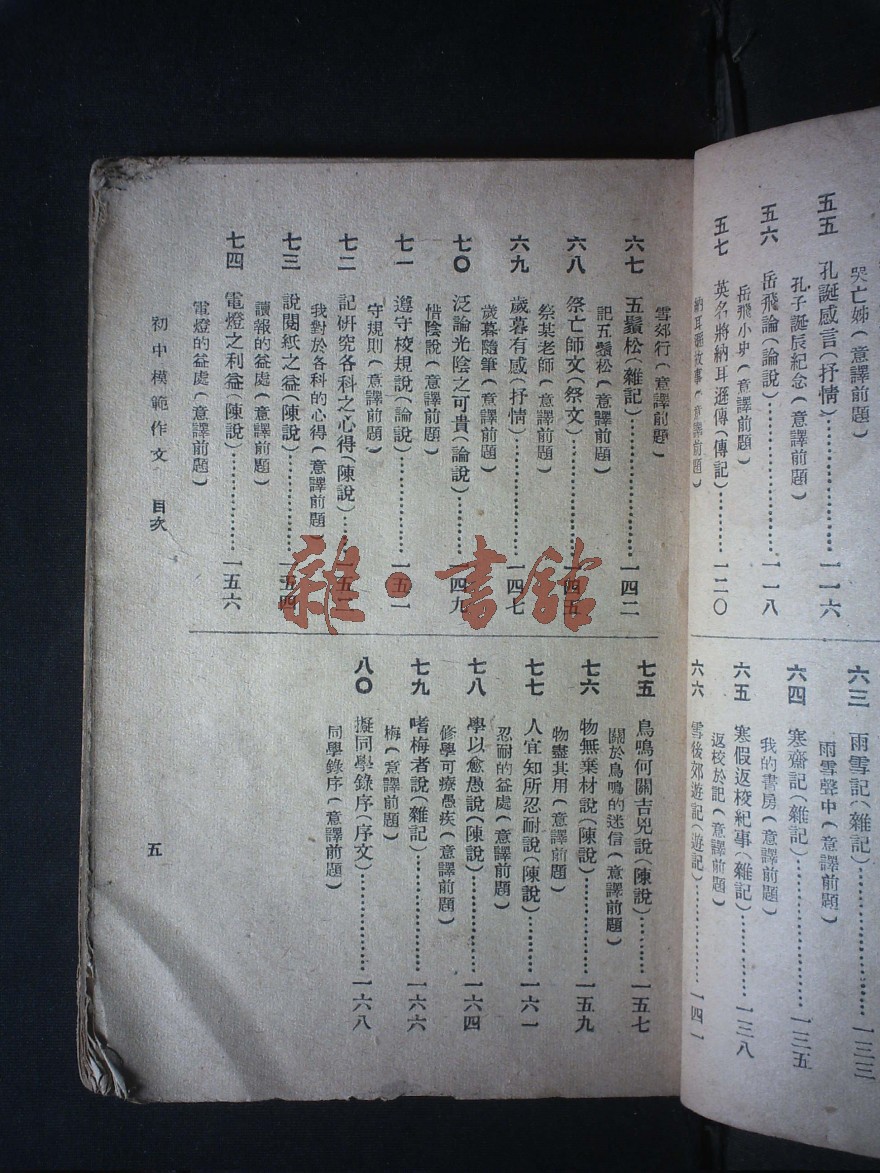 哭亡姊(意譯前題)
五五 孔誕感言(抒情)…………一一六
孔子誕辰紀念(意譯前題)
五六 岳飛論(論說)…………一一八
岳飛小史(意譯前題)
五七 英名將納耳遜傳(傳記)………一二〇
納耳遜故事(意譯前題)
六三 雨雪記(雜記)…………一三三
雨雪聲中(意譯前題)
六四 寒齋記(雜記)…………一三五
我的書房(意譯前題)
六五 寒假返校紀事(雜記)…………一三八
返校於記(意譯前題)
六六 雪後郊遊記(遊記)…………一四一
雪郊行(意譯前題)
六七 五鬚松(雜記)…………一四二
記五鬚松(意譯前題)
六八 祭亡師文(祭文)…………一四五
祭某老師(意譯前題)
六九 歲暮有感(抒情)…………一四七
歲暮隨筆(意譯前題)
七〇 泛論光陰之可貴(論說)………一四九
惜陰說(意譯前題)
七一 遵守校規說(論說)…………一五一
守規則(意譯前題)
七二 記研究各科之心得(陳說)……一五二
我對於各科的心得(意譯前題)
七三 說閱紙之益(陳說)…………一五四
讀報的益處(意譯前題)
七四 電燈之利益(陳說)…………一五六
電燈的益處(意譯前題)
七五 鳥鳴何關吉兇說(陳說)………一五七
關於鳥鳴的迷信(意譯前題)
七六 物無棄材說(陳說)…………一五九
物盡其用(意譯前題)
七七 人宜知所忍耐說(陳說)………一六一
忍耐的益處(意譯前題)
七八 學以愈愚說(陳說)…………一六四
修學可療愚疾(意譯前題)
七九 嗜梅者說(雜記)…………一六六
梅(意譯前題)
八〇 擬同學錄序(序文)…………一六八
同學錄序(意譯前題)
初中模範作文 目次
五
雜·書館